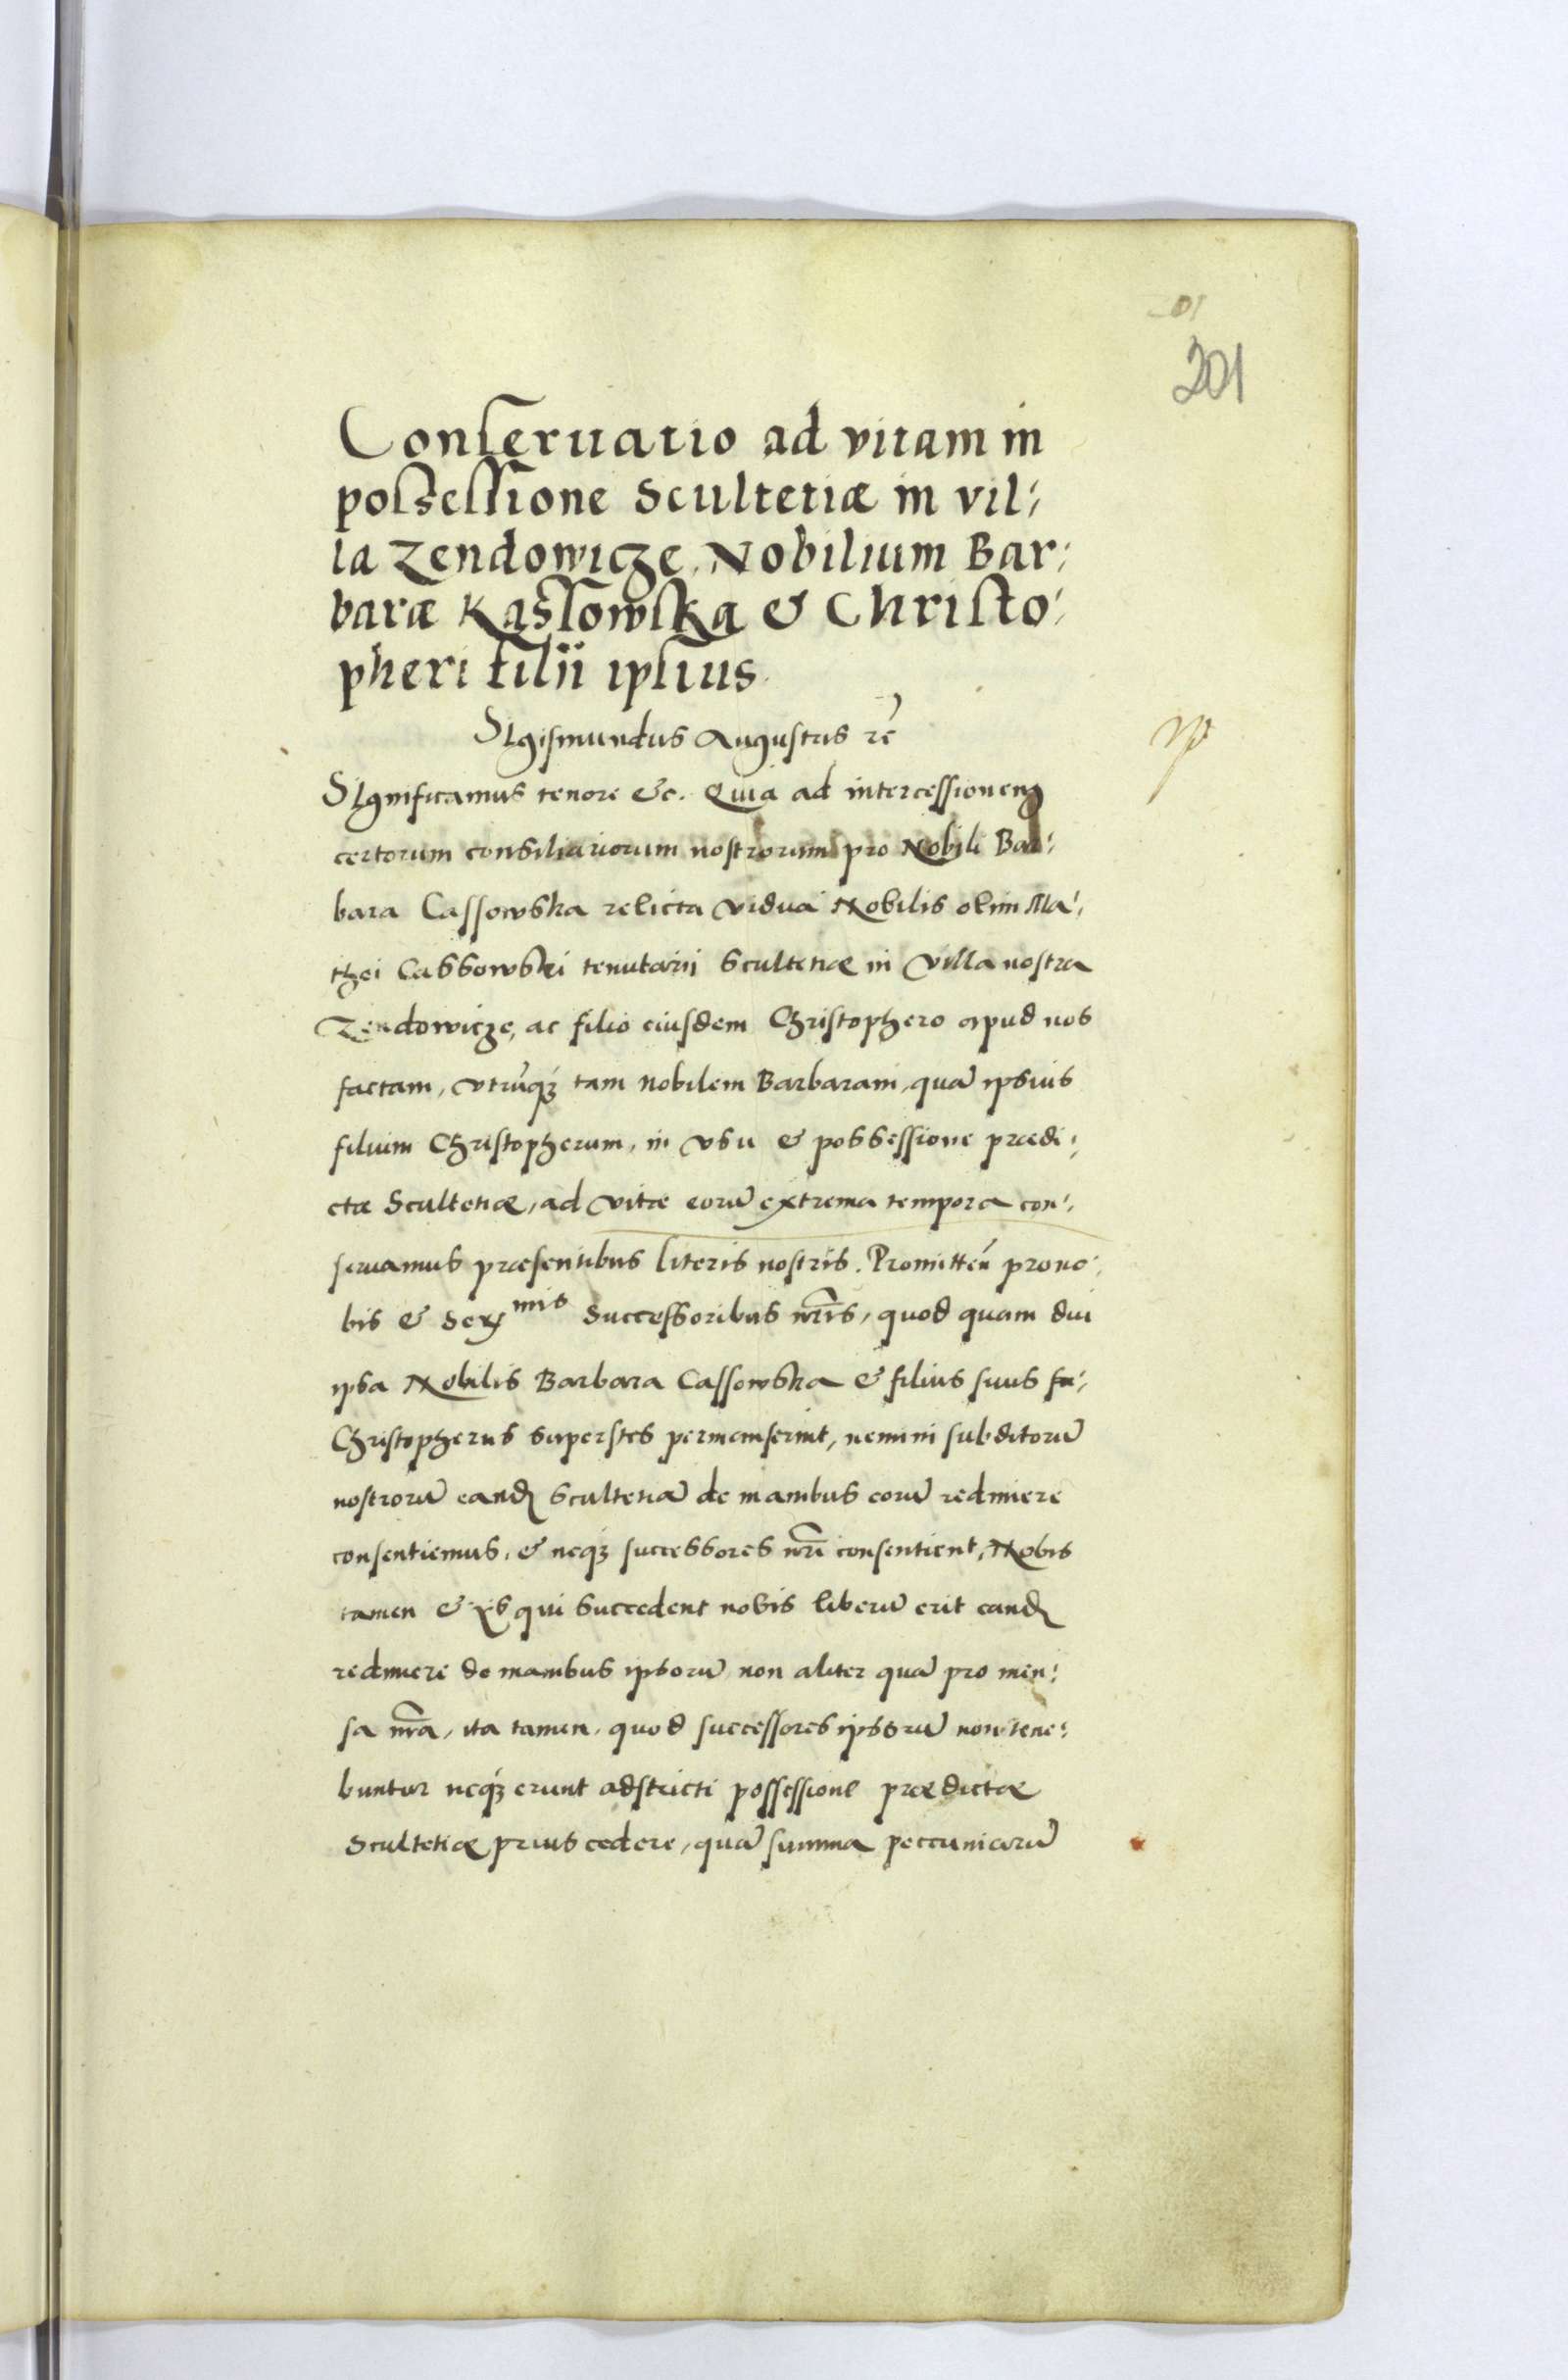 201
Conseruatio ad vitam in
possessione Scultetiæ in vil:
la Zendowicze, Nobilium Bar:
baræ Kassowska & Christo:
pheri filii ipsius.
Sigismundus Augustus rc̃
Significamus tenore &c. Quia ad intercessionem
certorum consiliariorum nostrorum pro Nobili Bar:
bara Cassowska relicta vidua Nobilis olim Ma:
thei Cassowski tenutarii Scultetiæ in Villa nostra
Zendowicze, ac filio eiusdem Christophero apud nos
factam, vtrũqꝫ tam Nobilem Barbaram, quã ipsius
filium Christopherum, in vsu & possessione prædi:
ctæ Scultetiæ, ad vitæ eorũ extrema tempora con:
seruamus præsentibus literis nostris. Promitteñ pro no:
bis & Sermis Successoribus nr̃is, quod quam diu
ipsa Nobilis Barbara Cassowska & filius suus
Christopherus superstes permanserint, nemini subditorũ
nostrorũ eandẽ scultetiã de manibus eorũ redimere
consentiemus, & neqꝫ successores nr̃i consentient, Nobis
tamen & ÿs qui succedent nobis liberũ erit eandẽ
redimere de manibus ipsorũ non aliter quã pro men:
sa nr̃a, ita tamen, quod successores ipsorũ non tene:
buntur neqꝫ erunt adstricti possessione prædictæ
Scultetiæ prius cedere, quã summa peccuniarũ